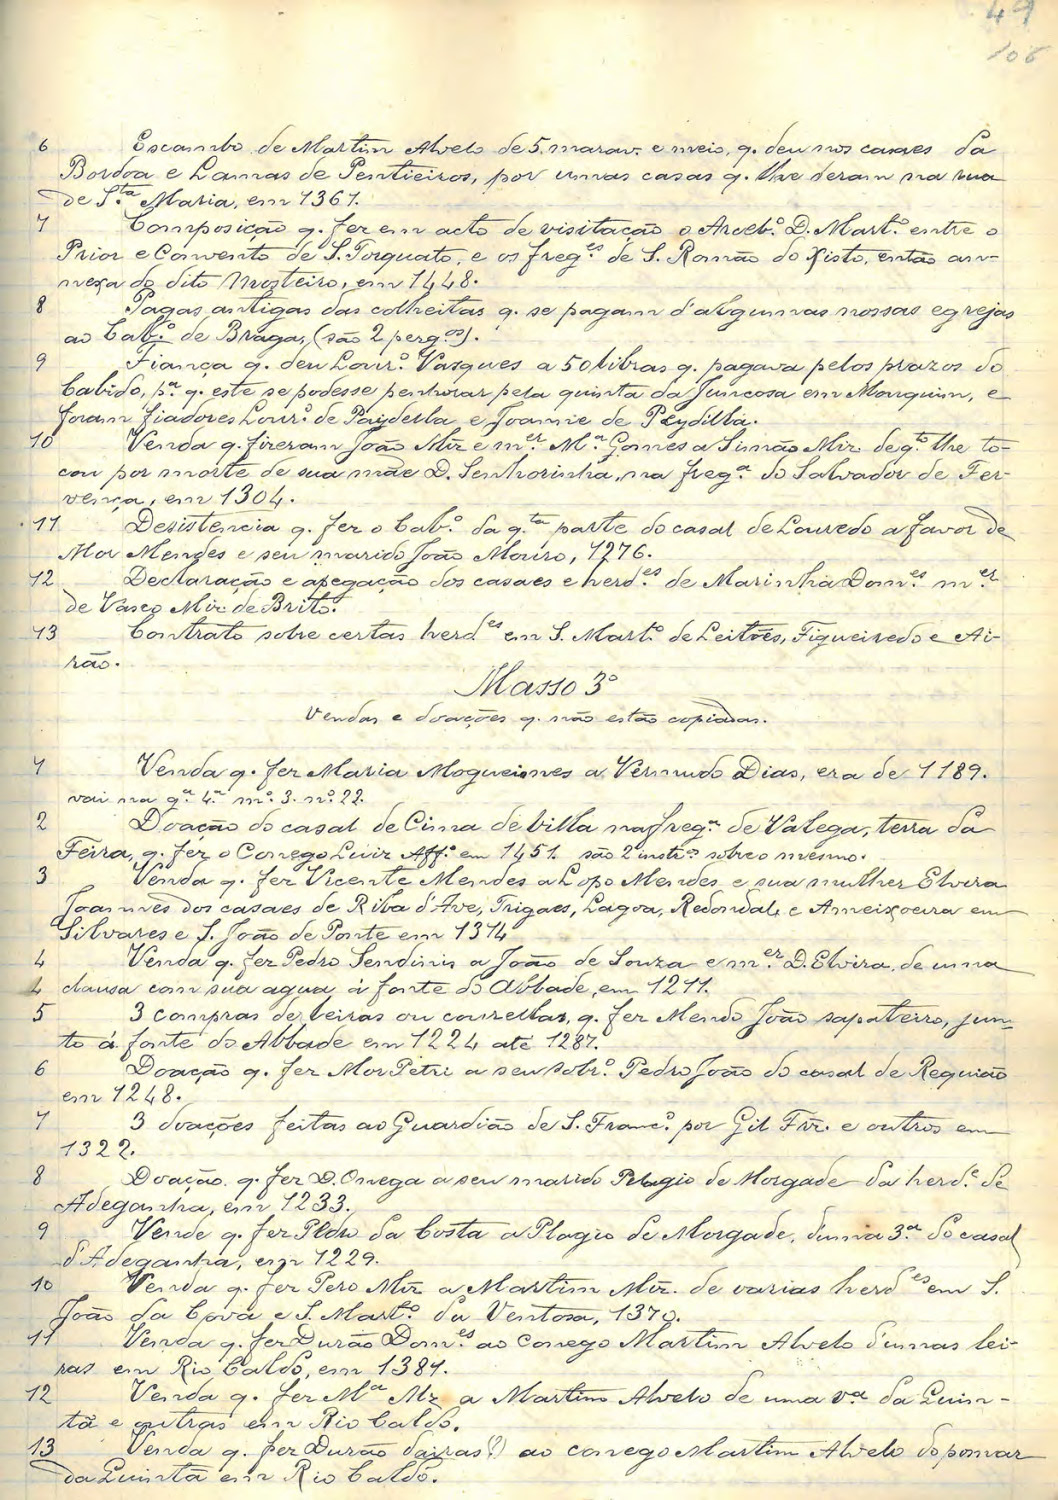 49
106
6 Escambo de Martim Alvelo de 5. marav. e meio, q. deu nos casaes da
Bordoa e Lamas de Pentieiros, por umas casas q. lhe deram na rua
de S.ta Maria, em 1361.
7 Composição q. fez em acto de visitação o Arceb.o D. Mart.o entre o
Prior e Convento de S. Torquato, e os freg.es de S. Romão do Xisto, então an-
nexa do dito Mosteiro, em 1448.
8 Pagas antigas das colheitas q. se pagam d'algumas nossas egrejas
ao Cab.o de Braga, (são 2 perg.os).
9 Fiança q. deu Lour.o Vasques a 50 libras q. pagava pelos prazos do
Cabido, p.a q. este se podesse penhorar pela quinta da Juncosa em Monquim, e
foram fiadores Lour.o de Paydella e Joanne de Peydilha.
10 Venda q. fizeram João Mīz e m.er M.a Gomes a Simão Miz. de q.to lhe to-
cou por morte de sua mãe D. Senhorinha, na freg.a do Salvador de Fer-
vença, em 1304.
11 Desistencia q. fez o Cab.o da q.ta parte do casal de Louredo a favor de
Mor Mendes e seu marido João Mouro, 1276.
12 Declaração e apegação dos casaes e herd.es de Marinha Dom.es m.er
de Vasco Miz de Brito.
13 Contrato sobre certas herd.es em S. Mart.o de Leitões, Figueiredo e Ai-
rão.
Masso 3o
Vendas e doações q. não estão copiadas.
1 Venda q. fez Maria Mogueimes a Vermudo Dias, era de 1189.
vai na g.a 4.a m.o 3. n.o 22.
2 Doação do casal de Cima de Villa na freg.a de Valega, terra da
Feira, q. fez o Conego Luiz Aff.o em 1451. são 2 instr.os sobre o mesmo.
3 Venda q. fez Vicente Mendes a Lopo Mendes e sua mulher Elvira
Joannes dos casaes de Riba d'Ave, Trigaes, Lagoa, Redondal, e Ameixoeira em
Silvares e S. João de Ponte em 1314
4 Venda q. fez Pedro Sendinis a João de Souza e m.er D. Elvira, de uma
4 clausa com sua agua á fonte do Abbade, em 1211.
5 3 compras de leiras ou courellas, q. fez Mendo João sapateiro, jun-
to á fonte do Abbade em 1224 até 1287.
6 Doação q. fez Mor Petri a seu sobr.o Pedro João do casal de Requião
em 1248.
7 3 doações feitas ao Guardião de S. Franc.o por Gil Frz. e outros em
1322.
8 Doação q. fez D. Onega a seu marido Pelagio de Morgade da herd.e de
Adeganha, em 1233.
9 Vende q. fez Pedro da Costa a Plagio de Morgade, d'uma 3.a do casal
d'Adeganha, em 1229.
10 Venda q. fez Pero Mīz a Martim Mīz. de varias herd.es em S.
João da Cova e S. Mart.o da Ventosa, 1370.
11 Venda q. fez Durão Dom.es ao conego Martim Alvelo d'umas lei-
ras em Rio Caldo, em 1381.
12 Venda q. fez M.a Mz a Martim Alvelo de uma v.a da Quin-
tã e outras em Rio Caldo.
13 Venda q. fez Durão dairas(?) ao conego Martim Alvelo do pomar
da Quintã em Rio Caldo.